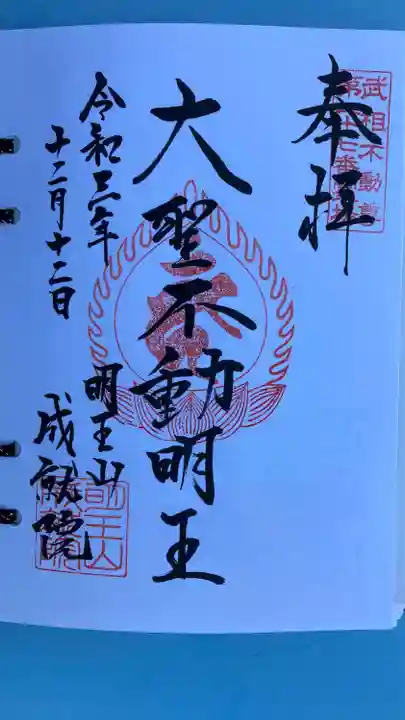 奉拝
武相不動尊
第十七番霊場
大聖不動明王
令和三年
十二月十二日
明王山
成就院